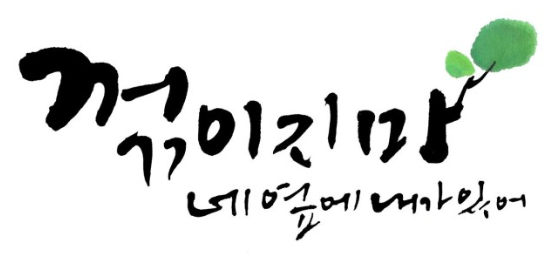 꺾이지마
네 옆에 내가 있어